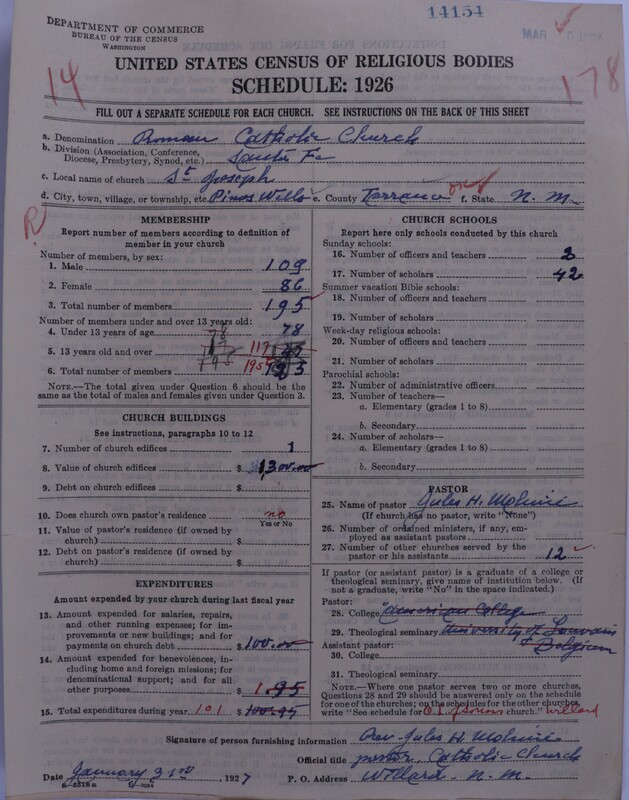 14154
DEPARTMENT OF COMMERCE
BUREAU OF THE CENSUS
WASHINGTON
MAR
UNITED STATES CENSUS OF RELIGIOUS BODIES
SCHEDULE: 1926
14
178
FILL OUT A SEPARATE SCHEDULE FOR EACH CHURCH. SEE INSTRUCTIONS ON THE BACK OF THIS SHEET
a. Denomination Roman Catholic Church
b. Division (Association, Conference, Diocese, Presbytery, Synod, etc.) Santa Fe
c. Local name of church St Joseph
d. City, town, village, or township, etc. Pinos Wells e. County Torrance f. State N. M.
R
MEMBERSHIP
Report number of members according to definition of member in your church
Number of members, by sex:
1. Male 109
2. Female 86
3. Total number of members 195
Number of members under and over 13 years old:
4. Under 13 years of age 78
5. 13 years old and over 117
6. Total number of members 195
NOTE.—The total given under Question 6 should be the same as the total of males and females given under Question 3.
CHURCH BUILDINGS
See instructions, paragraphs 10 to 12
7. Number of church edifices 1
8. Value of church edifices $ 1,300.00
9. Debt on church edifices $
10. Does church own pastor's residence no
Yes or No
11. Value of pastor's residence (if owned by church) $
12. Debt on pastor's residence (if owned by church) $
EXPENDITURES
Amount expended by your church during last fiscal year
13. Amount expended for salaries, repairs, and other running expenses; for improvements or new buildings; and for payments on church debt $ 100.00
14. Amount expended for benevolences, including home and foreign missions; for denominational support; and for all other purposes $ 1.95
15. Total expenditures during year 101 $ 100.95
CHURCH SCHOOLS
Report here only schools conducted by this church
Sunday schools:
16. Number of officers and teachers 2
17. Number of scholars 42
Summer vacation Bible schools:
18. Number of officers and teachers
19. Number of scholars
Week-day religious schools:
20. Number of officers and teachers
21. Number of scholars
Parochial schools:
22. Number of administrative officers
23. Number of teachers—
a. Elementary (grades 1 to 8)
b. Secondary
24. Number of scholars—
a. Elementary (grades 1 to 8)
b. Secondary
PASTOR
25. Name of pastor Jules H. Molinie
(If church has no pastor, write "None")
26. Number of ordained ministers, if any, employed as assistant pastors
27. Number of other churches served by the pastor or his assistants 12
If pastor (or assistant pastor) is a graduate of a college or theological seminary, give name of institution below. (If not a graduate, write "No" in the space indicated.)
Pastor:
28. College American College
29. Theological seminary University of Louvain
Belgium
Assistant pastor:
30. College
31. Theological seminary
NOTE.—Where one pastor serves two or more churches, Questions 28 and 29 should be answered only on the schedule for one of the churches; on the schedules for the other churches, write "See schedule for church." Willard
Signature of person furnishing information Rev. Jules H. Molinie
Official title pastor, Catholic Church
Date January 31rd, 1927 P. O. Address Willard N. M.